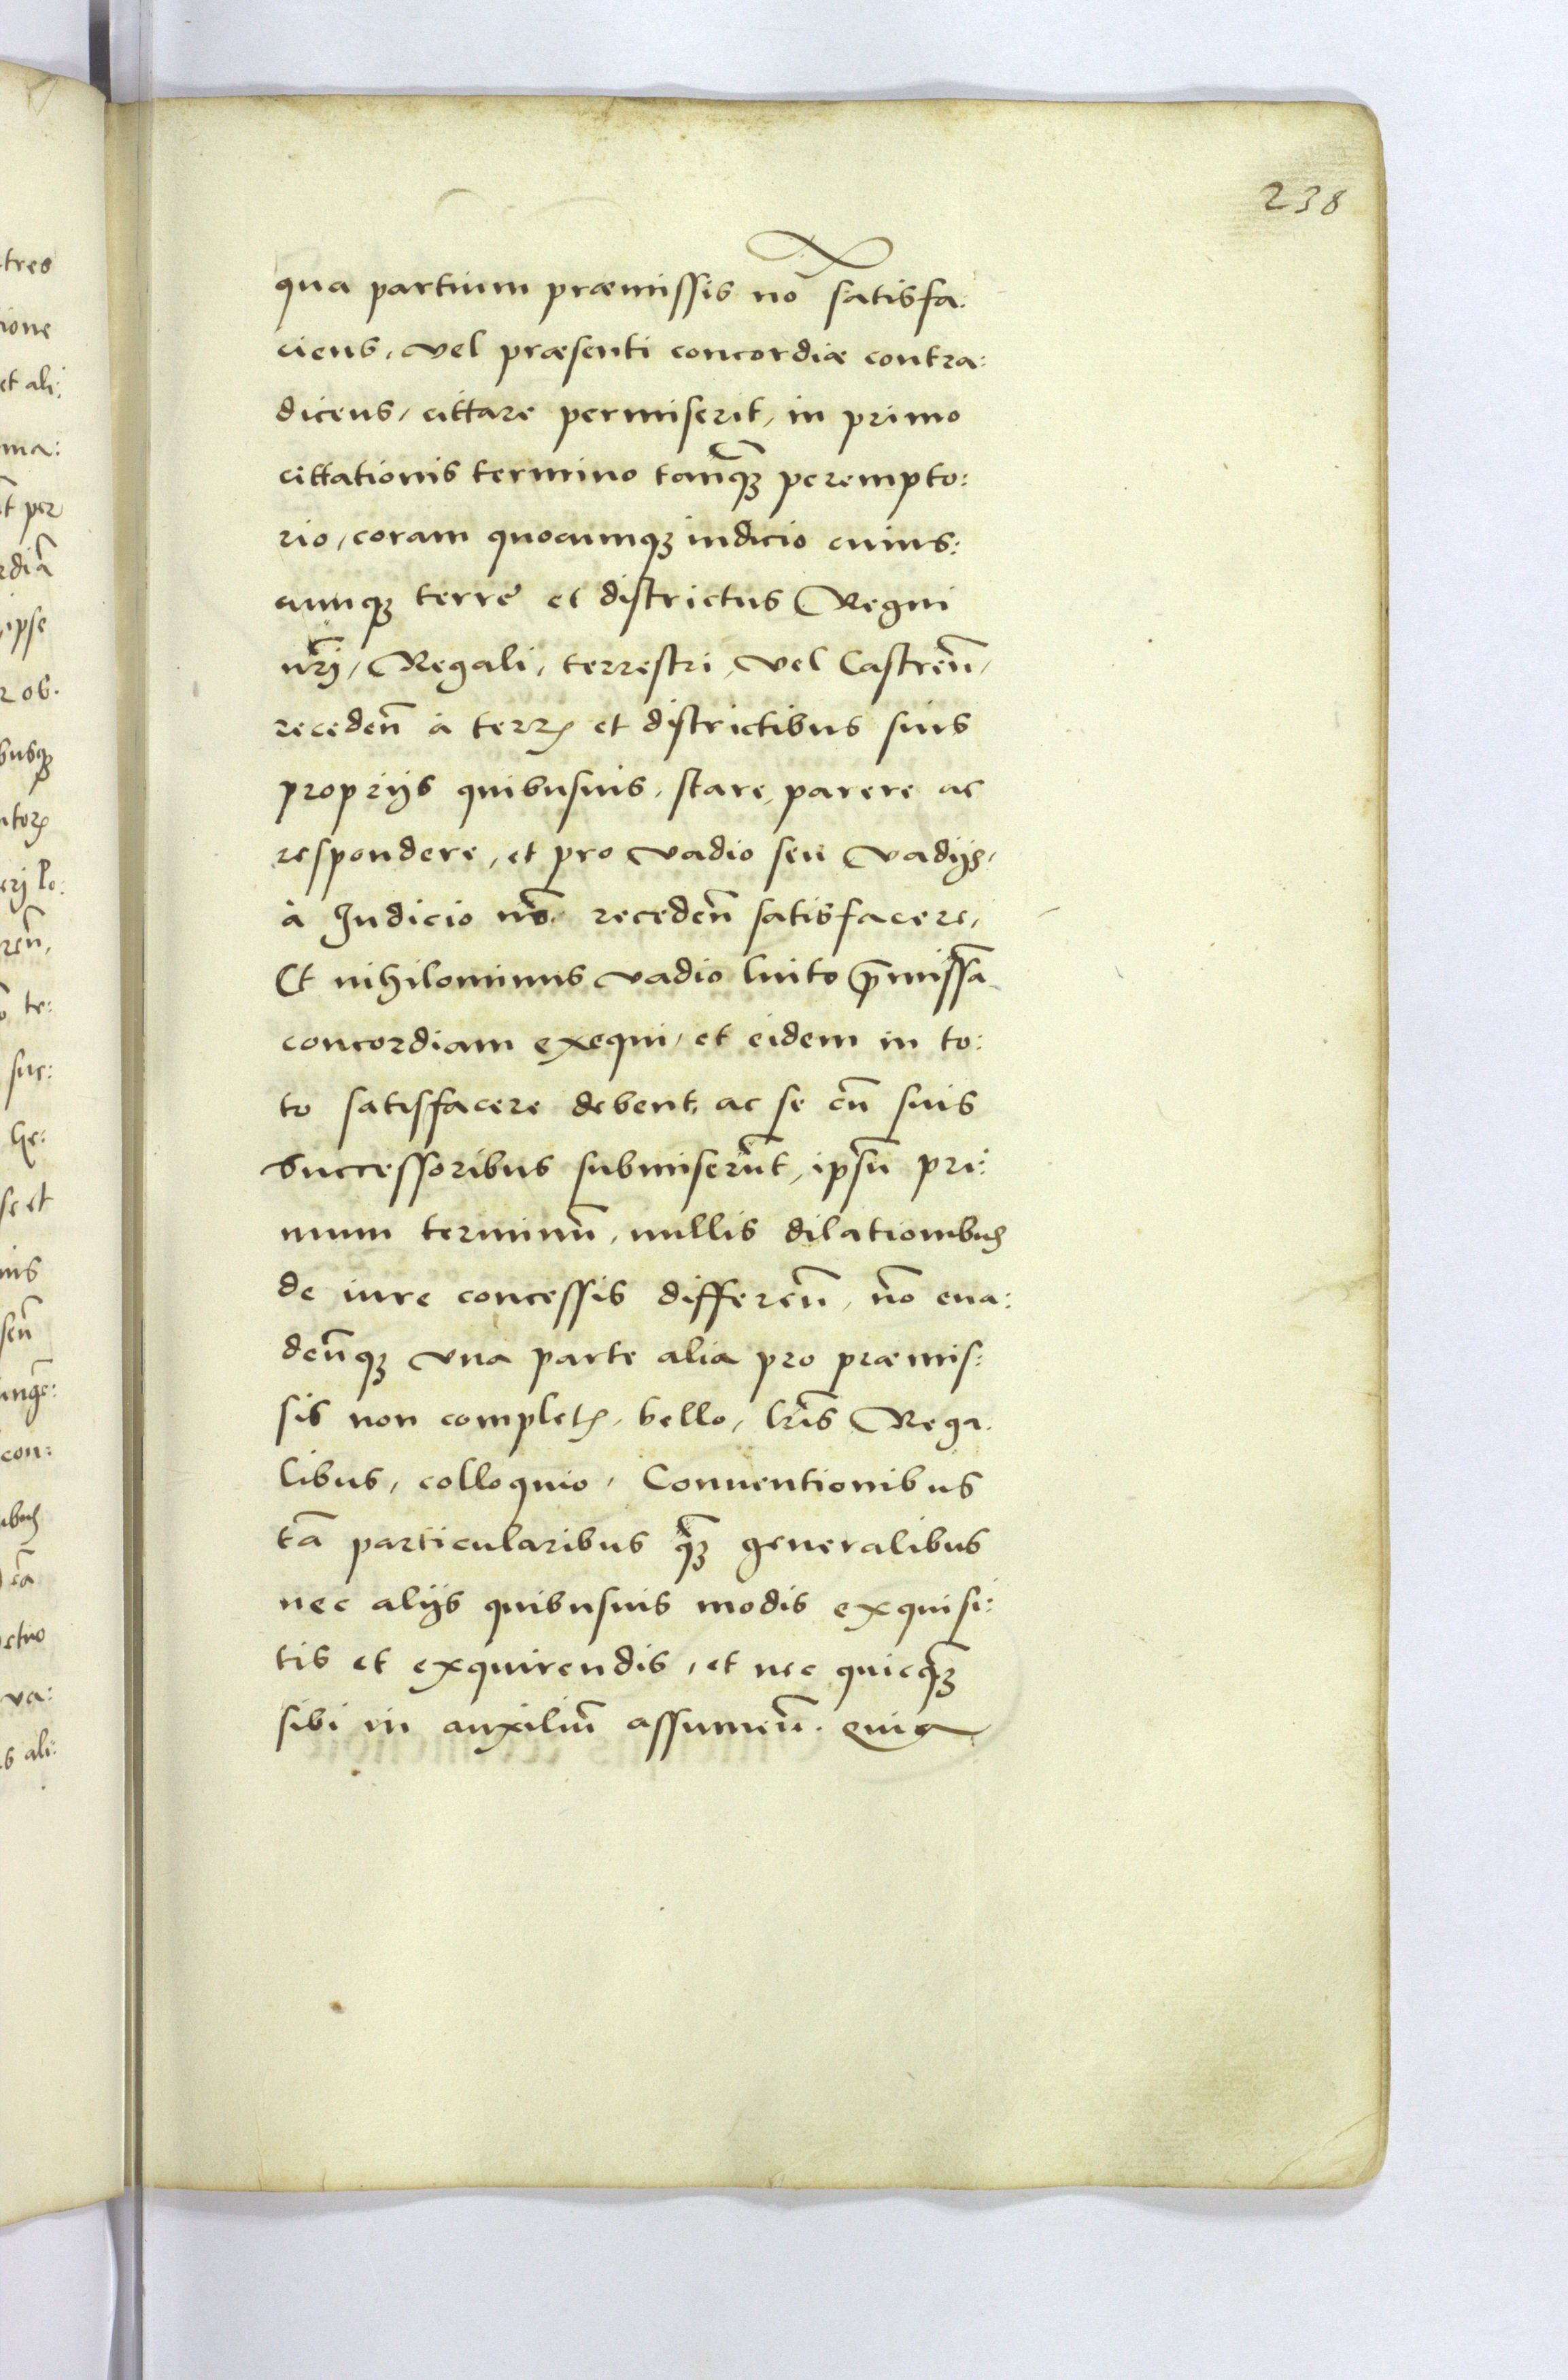 238
qua partium præmissis nō satisfa:
ciens, vel præsenti concordiæ contra:
dicens, cittare permiserit, in primo
cittationis termino tanq̃ꝫ perempto:
rio, coram quocumqꝫ iudicio cuius:
cumqꝫ terre et districtus Regni
nr̃j, Regali, terrestri, vel Castren̄,
receden̄ à terrꝭ et districtibus suis
proprijs quibusuis, stare, parere ac
respondere, et pro vadio seu vadijs,
à Iudicio nō receden̄ satisfacere,
Et nihilominus vadio luito p̄missā
concordiam exequi, et eidem in to:
to satisfacere debent, ac se cū suis
Successoribus submiserūt, ipsū pri:
mum terminū, nullis dilationibus
de iure concessis differen̄, nō eua:
den̄qꝫ vna parte alia pro præmis:
sis non completꝭ, bello, lr̄is Rega:
libus, colloquio, Conuentionibus
tā particularibus q̃ꝫ generalibus
nec alijs quibusuis modis exquisi:
tis et exquirendis, et nec quicq̃ꝫ
sibi in auxiliū assumen̄. Quia
tres
ione
et ali:
ma:
t per
rdiā
ipse
r ob.
busqꝫ
ntorꝭ
erj lo:
ren̄,
te:
suc:
he:
se et
nis
sen̄
con:
ctuo
va:
s ali: